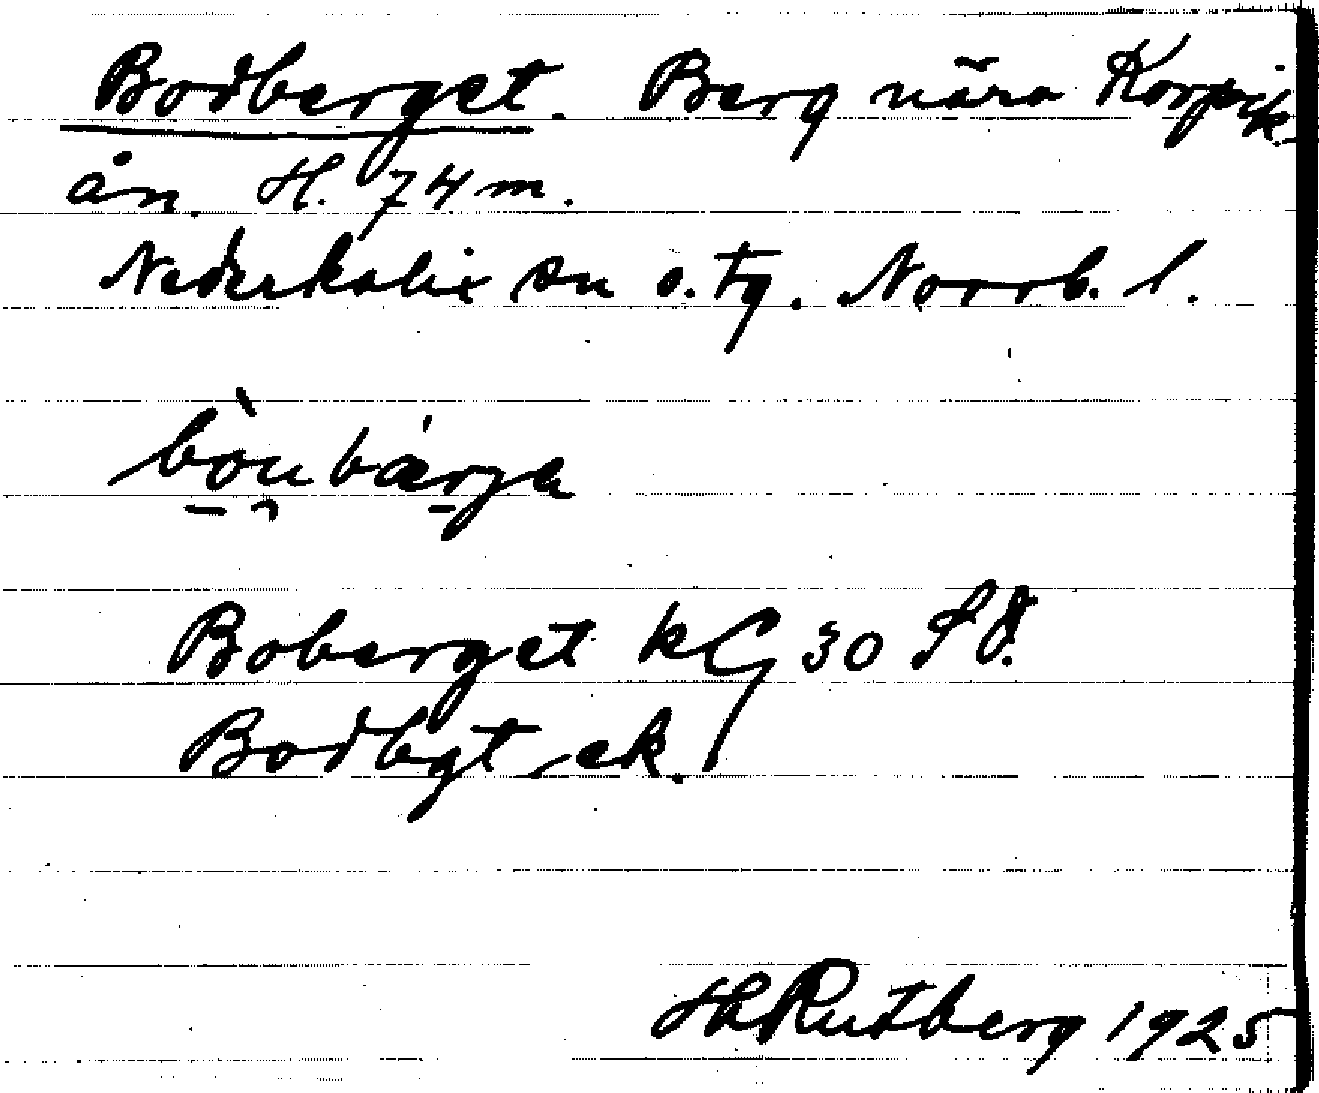 Bodberget. Berg nära Korpik-
ån. H. 74 m.
Nederkalix sn o. tg. Norrb. l.
bòubærjə
Boberget kG 30 SV.
Bodbgt ek.
HRutberg 1925